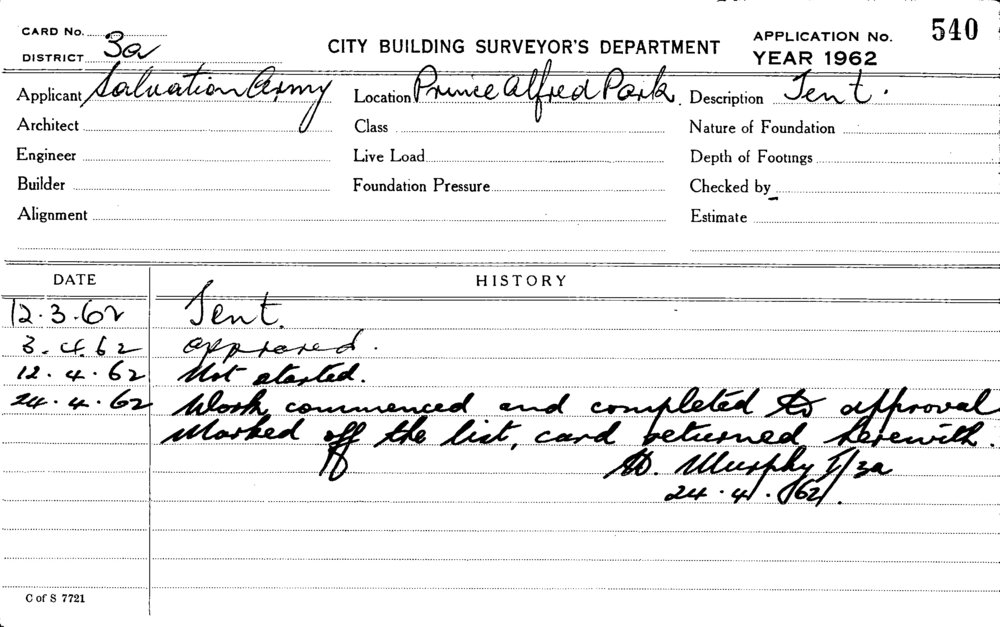 CARD No.
DISTRICT 3a
CITY BUILDING SURVEYOR'S DEPARTMENT
APPLICATION No. 540
YEAR 1962
Applicant Salvation Army Location Prince Alfred Park. Description Tent.
Architect Class Nature of Foundation
Engineer Live Load Depth of Footings
Builder Foundation Pressure Checked by
Alignment Estimate
DATE HISTORY
12.3.62 Tent.
3.4.62 approved.
12.4.62 Not started.
24.4.62 Work commenced and completed to approval
Marked off the list, card returned herewith.
Murphy I/3a
24.4.62.
C of S 7721